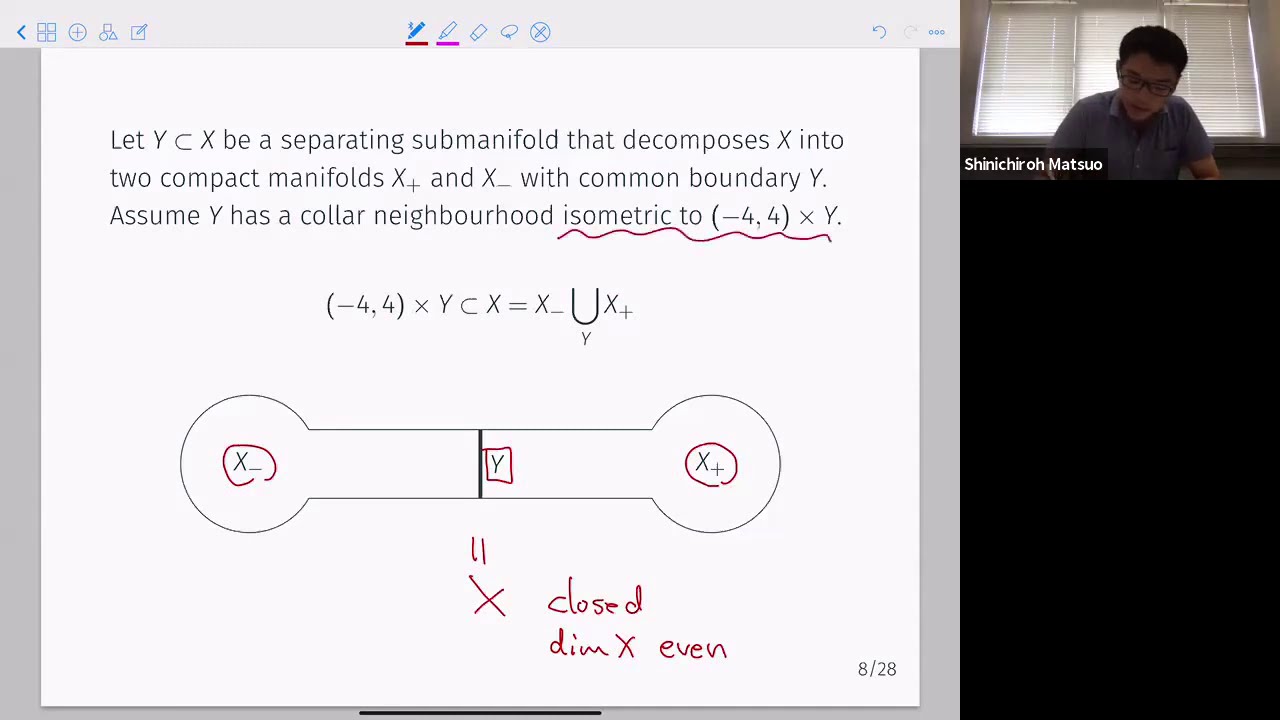 Let Y ⊂ X be a separating submanifold that decomposes X into
two compact manifolds X₊ and X₋ with common boundary Y.
Assume Y has a collar neighbourhood isometric to (−4, 4) × Y.
(−4, 4) × Y ⊂ X = X₋ ⋃ X₊
Y
X₋ Y X₊
||
X closed
dim X even
8/28
Shinichiroh Matsuo